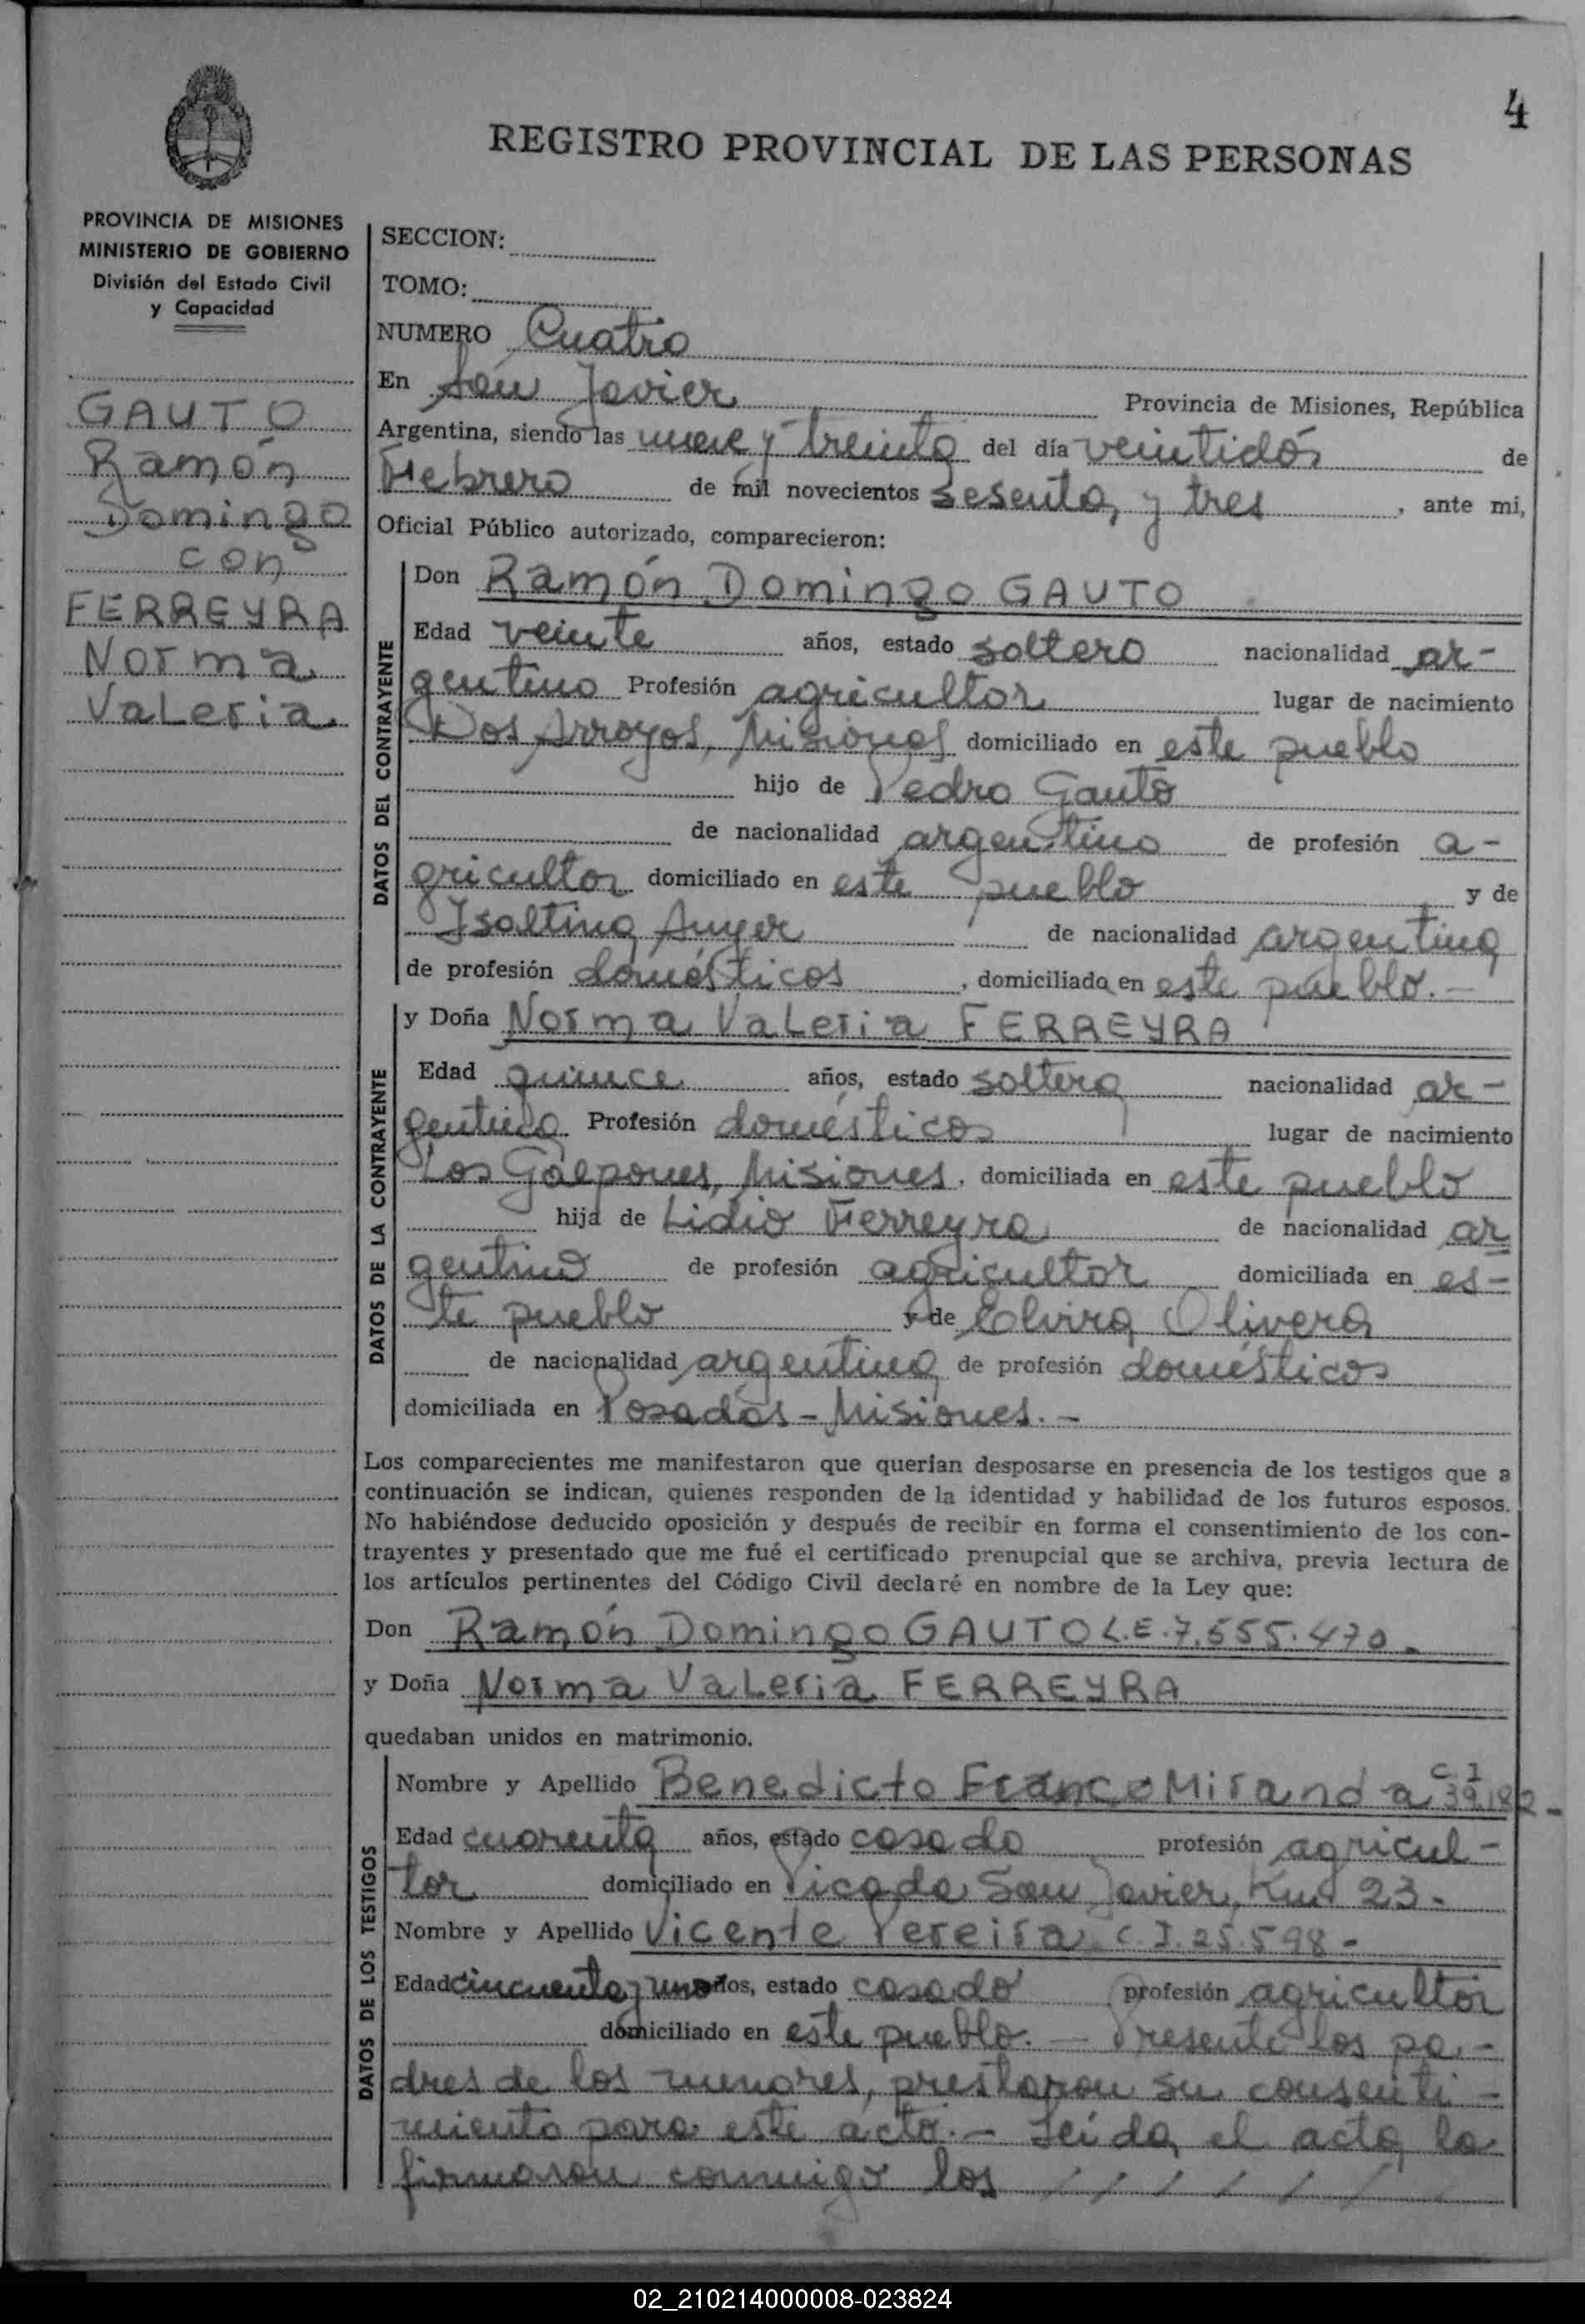 4
REGISTRO PROVINCIAL DE LAS PERSONAS
PROVINCIA DE MISIONES
MINISTERIO DE GOBIERNO
División del Estado Civil
y Capacidad
GAUTO
Ramón
Domingo
con
FERREYRA
Norma
Valeria
SECCION:
TOMO:
NUMERO Cuatro
En San Javier Provincia de Misiones, República
Argentina, siendo las nueve y treinta del día veintidós de
Febrero de mil novecientos sesenta y tres, ante mi,
Oficial Público autorizado, comparecieron:
DATOS DEL CONTRAYENTE
Don Ramón Domingo GAUTO
Edad veinte años, estado soltero nacionalidad ar-
gentino Profesión agricultor lugar de nacimiento
Dos Arroyos, Misiones domiciliado en este pueblo
hijo de Pedro Gauto
de nacionalidad argentino de profesión a-
gricultor domiciliado en este pueblo y de
Isaltina de nacionalidad argentina
de profesión domésticos, domiciliada en este pueblo.-
DATOS DE LA CONTRAYENTE
y Doña Norma Valeria FERREYRA
Edad quince años, estado soltera nacionalidad ar-
gentina Profesión domésticos lugar de nacimiento
Los Galpones, Misiones, domiciliada en este pueblo
hija de Lidio Ferreyra de nacionalidad ar
gentino de profesión agricultor domiciliada en es-
te pueblo y de Elvira Olivera
de nacionalidad argentina de profesión domésticos
domiciliada en Posadas - Misiones.-
Los comparecientes me manifestaron que querían desposarse en presencia de los testigos que a
continuación se indican, quienes responden de la identidad y habilidad de los futuros esposos.
No habiéndose deducido oposición y después de recibir en forma el consentimiento de los con-
trayentes y presentado que me fué el certificado prenupcial que se archiva, previa lectura de
los artículos pertinentes del Código Civil declaré en nombre de la Ley que:
Don Ramón Domingo GAUTO L.E. 7.555.470.
y Doña Norma Valeria FERREYRA
quedaban unidos en matrimonio.
DATOS DE LOS TESTIGOS
Nombre y Apellido Benedicto Franco Miranda C.I 39.182-
Edad cuarenta años, estado casado profesión agricul-
tor domiciliado en Picada San Javier, Km 23-
Nombre y Apellido Vicente Pereira C.I. 25.598-
Edad cincuenta y uno años, estado casado profesión agricultor
domiciliado en este pueblo. - Presente los pa-
dres de los menores, prestaron su consenti-
miento para este acto.- Leída el acta, la
firmaron conmigo los / / / / / /
02_210214000008-023824